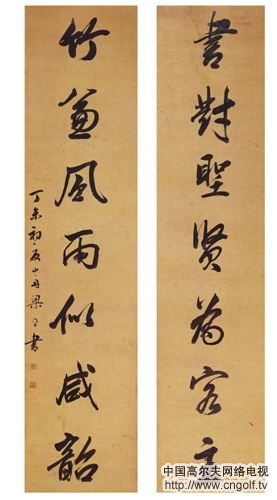 書對聖賢為客主
竹兼風雨似咸韶
丁未初夏山舟梁同書
中国高尔夫网络电视
http://www.cngolf.tv